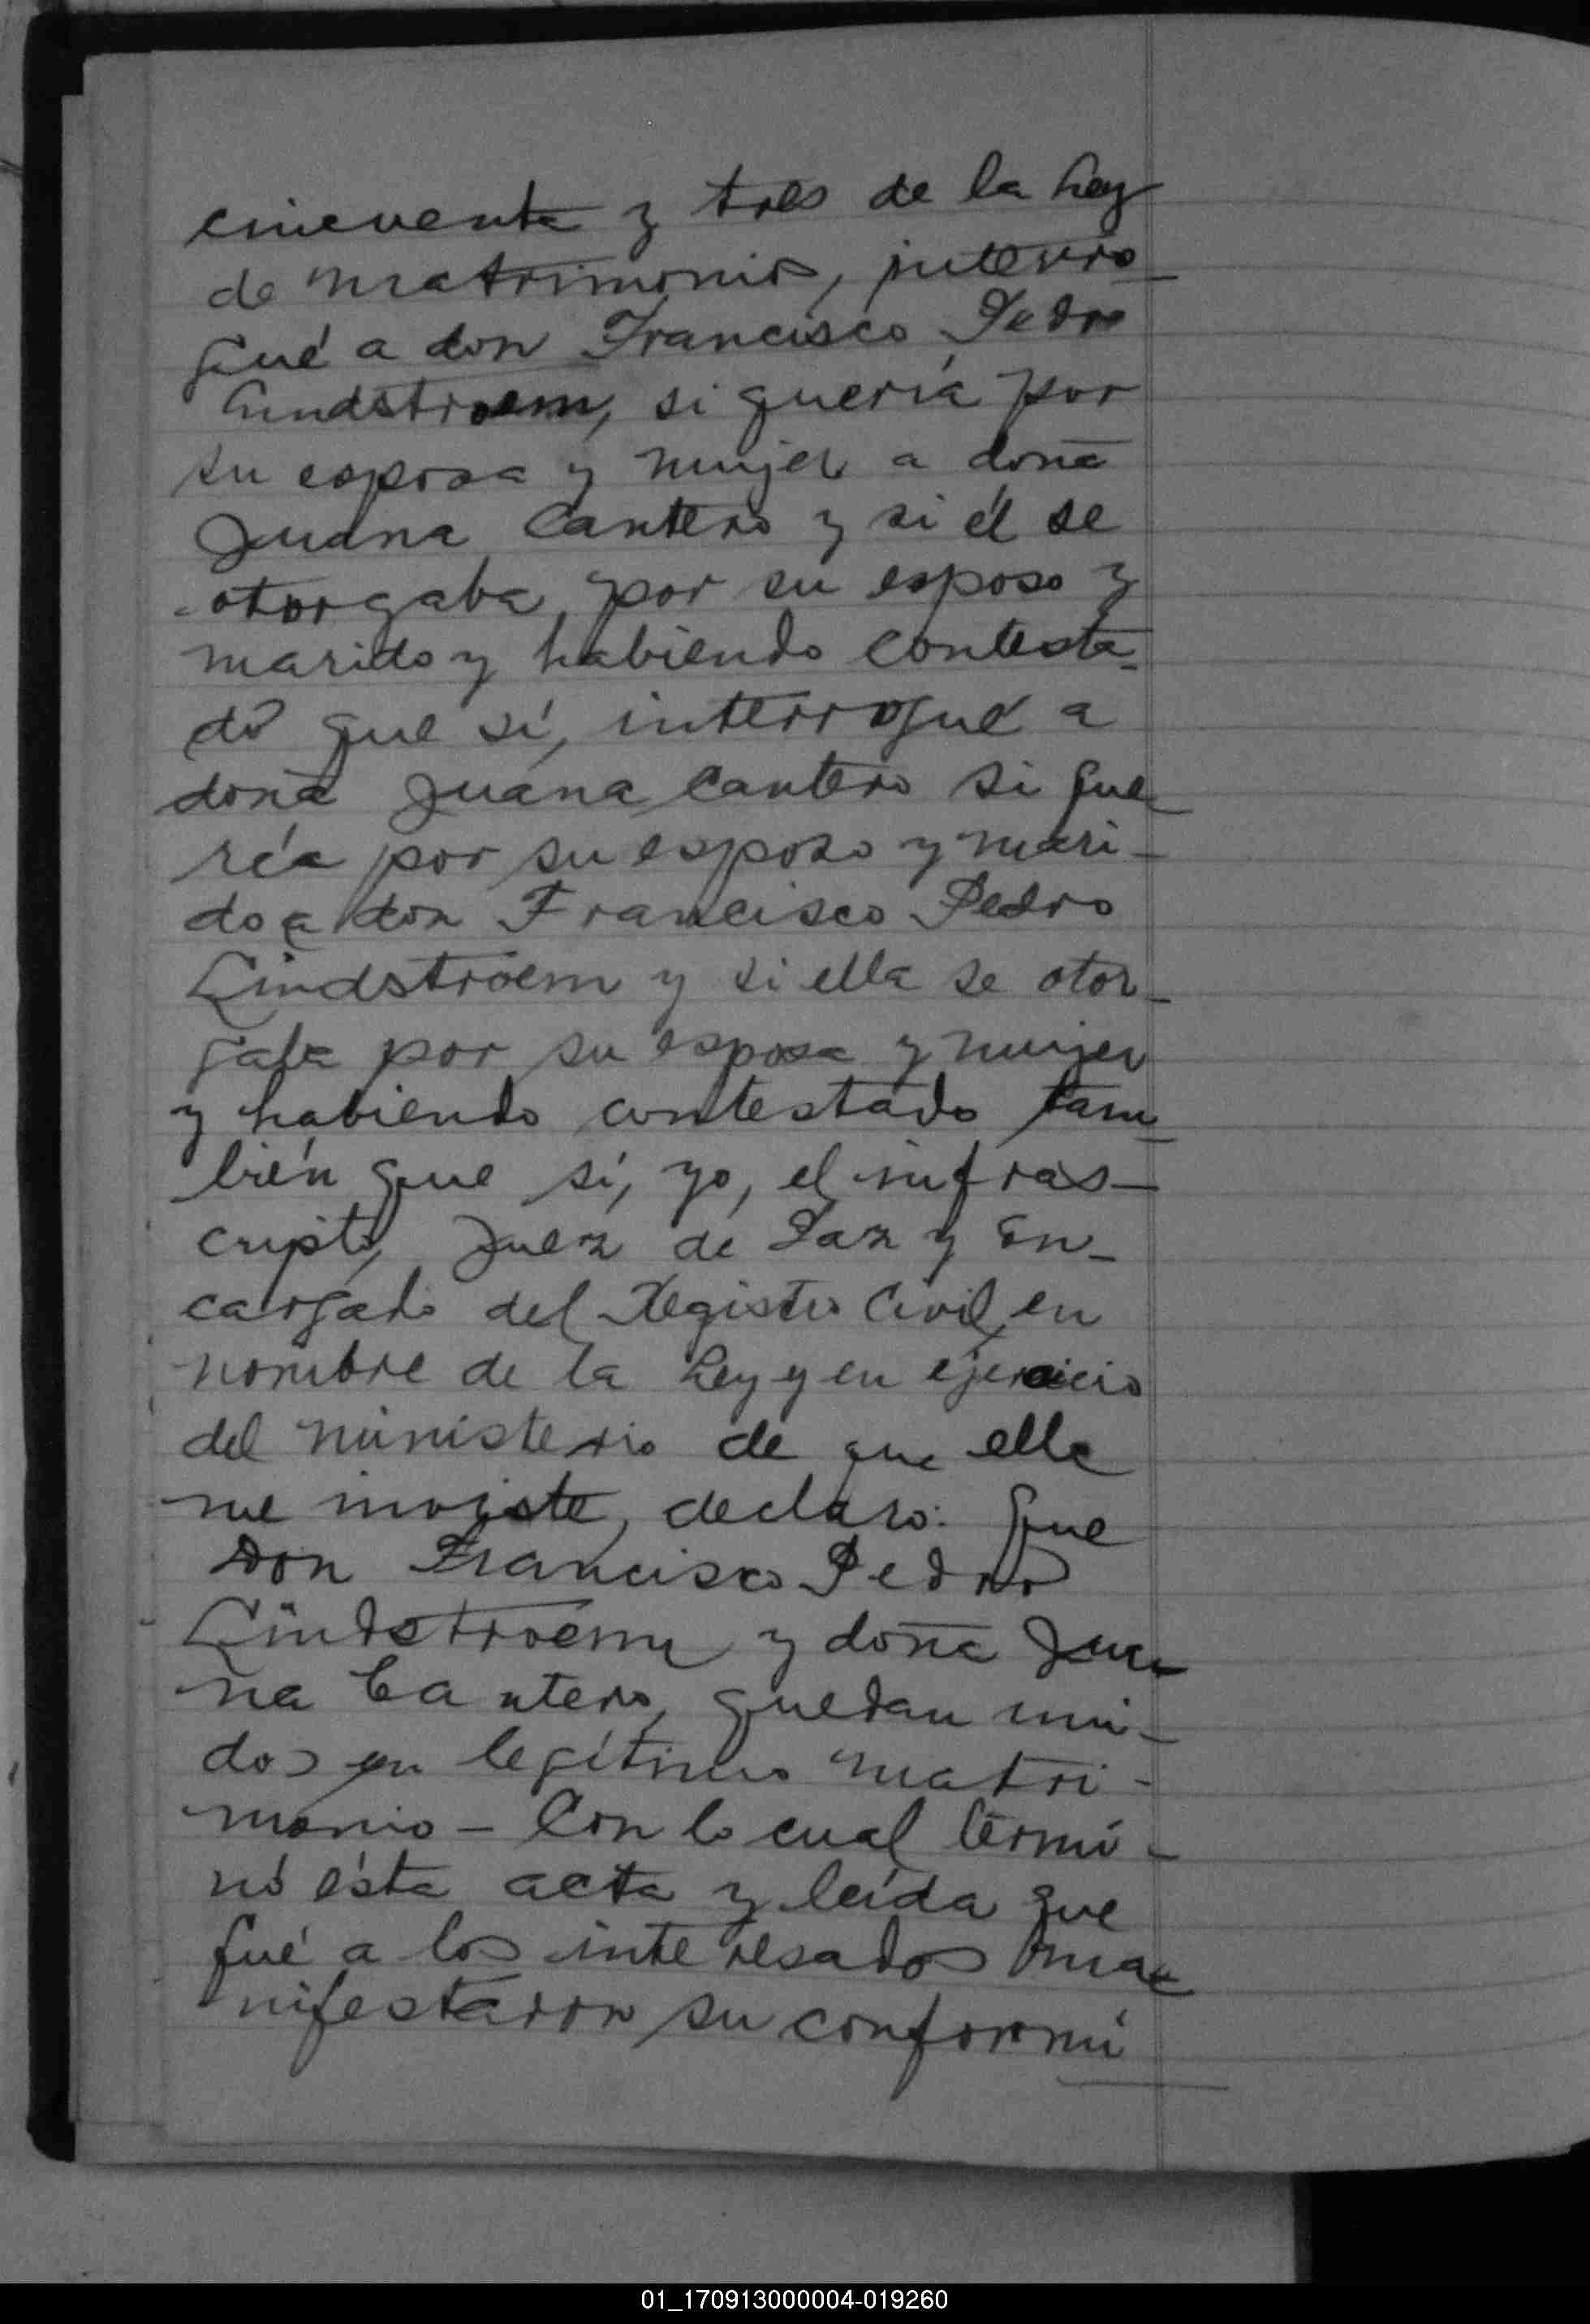 cincuenta y tres de la Ley
de Matrimonio, interro-
gué a don Francisco Pedro
Lindstroem, si quería por
su esposa y mujer a doña
Juana Cantero y si él se
otorgaba por su esposo y
marido y habiendo contesta-
do que sí, interrogué a
doña Juana Cantero si que
ría por su esposo y mari-
do a don Francisco Pedro
Lindstroem y si ella se otor-
gaba por su esposa y mujer
y habiendo contestado tam-
bién que sí, yo, el infras-
cripto, Juez de Paz y En-
cargado del Registro Civil, en
nombre de la Ley y en ejercicio
del ministerio de que ella
me inviste, declaro: que
Don Francisco Pedro
Lindstroem y doña Jua-
na Cantero, quedan uni-
dos en legítimo matri-
monio - Con lo cual térmi-
nó ésta acta y leída que
fué a los interesados ma-
nifestaron su conformi
01_170913000004-019260